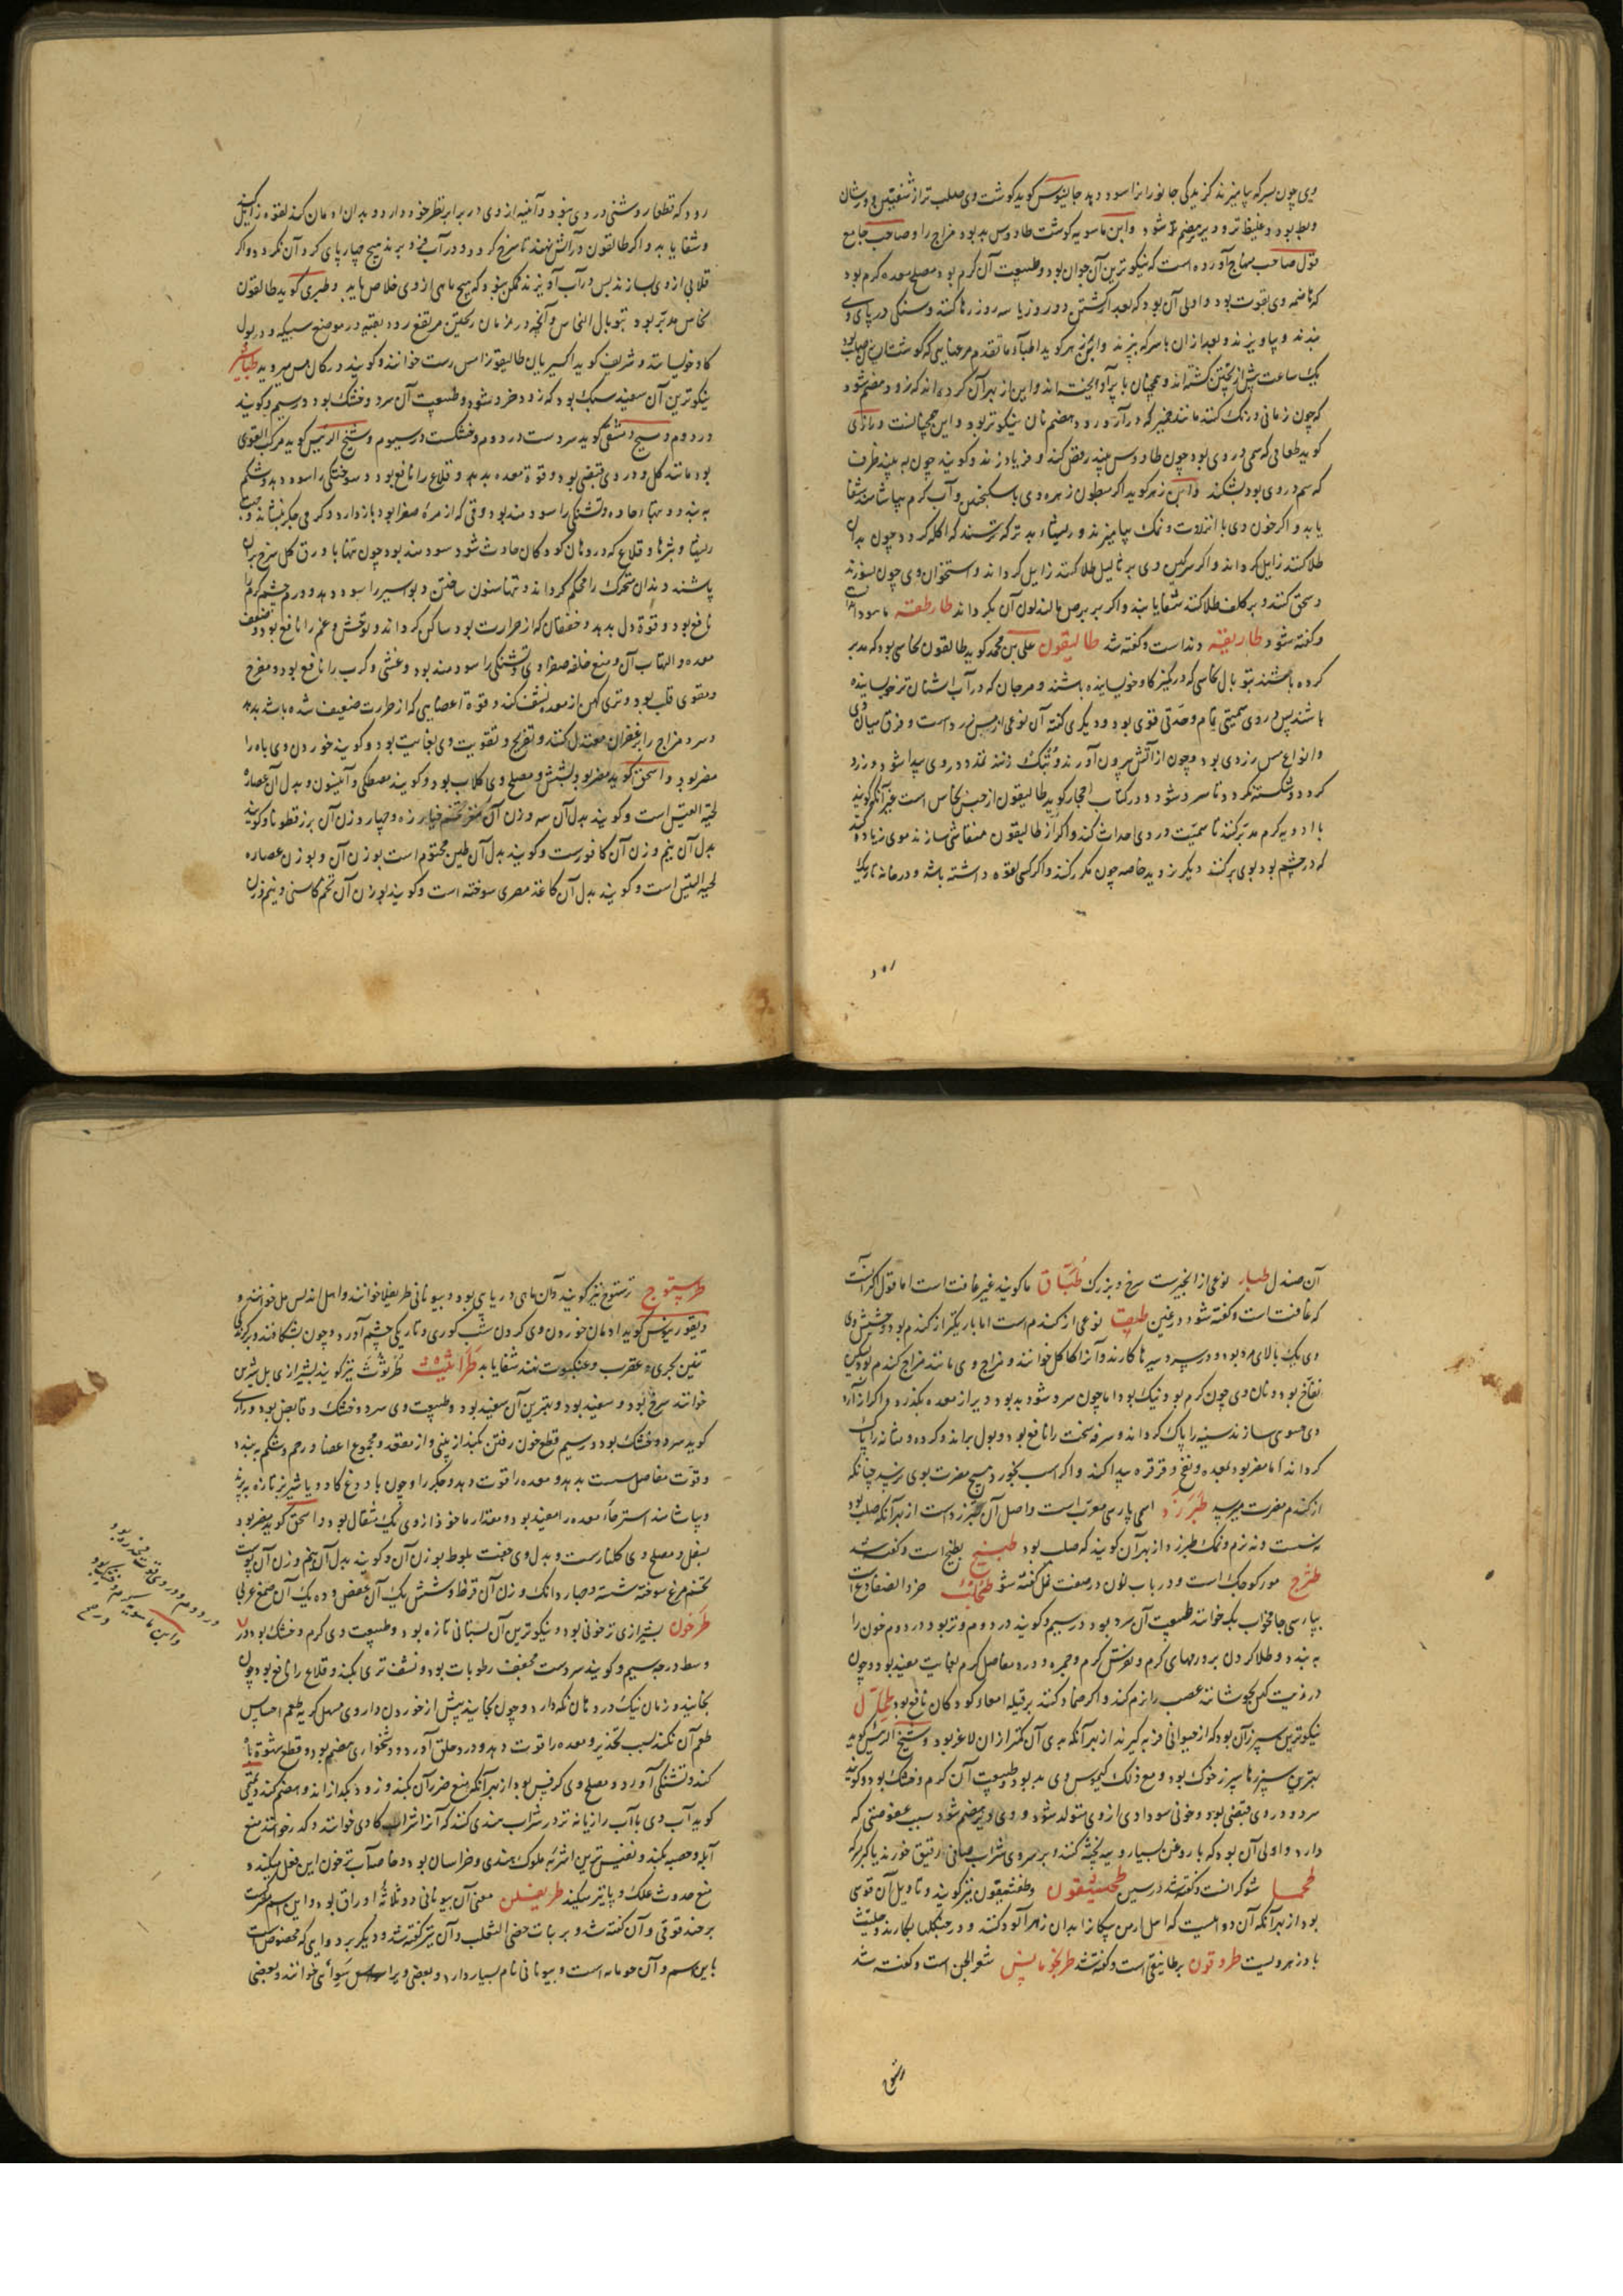 وی چون بسرکه بیامیزند گزیدگی جانور را سود دهد جالینوس گوید گوشت وی صلب تر از شفنین و ورشان
و بط بود و غلیظ تر و دیر هضم تر شود و ابن ماسویه گوید گوشت طاوس بد بود مزاج را و صاحب جامع
قول صاحب منهاج آورده است که نیکوترین آن جوان بود و طبیعت آن گرم بود مصلح معده گرم بود
که هاضمه وی بقوت بود و اولی آن بود که بعد از کشتن دو روز یا سه روز رها کنند و سنگی در پای وی
بندند و بیاویزند و بعد از آن با سرکه بپزند و ابن زهر گوید اطباء ما تقدم مرغهایی که گوشت ایشان صلب بود
یک ساعت پیش از پختن کشته اند و همچنان با پر آویخته اند و این از بهر آن کرده اند که زود هضم شود
که چون زمانی درنگ کنند مانند خمیر که در آرد رود هضم نان نیکوتر بود و این همچنانست و رازی
گوید طعامی که سمی در وی بود چون طاوس بیند رقص کند و فریاد زند و گویند چون به بیند ظرف
که سم در وی بود بشکند و ابن زهر گوید اگر مبطون زهره وی با سکنجبین و آب گرم بیاشامد شفا
یابد و اگر خون وی با انزروت و نمک بیامیزند و بر ریشهاء بد تر که ترسند که اکله گردد چون بدان
طلا کنند زایل گرداند و اگر سرگین وی بر ثالیل طلا کنند زایل گرداند و استخوان وی چون بسوزند
و سحق کنند و بر کلف طلا کنند شفا یابند و اگر بر برص مالند لون آن بگرداند طارطقه ماهودانه است
و گفته شود طاریقه دند است و گفته شد طالیقون علی بن محمد گوید طالقون نحاسی بود که مدبر
کرده باشند بتوبال نحاسی که در کمیز گاو خوسانیده باشند و مرجان که در آب اشنان تر خوسانیده
باشند پس در وی سمیتی تمام وحدتی قوی بود و دیگری گفته آن نوعی از مس زرد است و فرق میان وی
و انواع مس زردی بود و چون از آتش بیرون آورند و پتک زنند تمدد در وی پیدا شود و زرد
گردد و شکسته گردد تا سرد شود و در کتاب احجار گوید طالیقون از جنس نحاس است غیر آنکه گویند
با ادویه گرم مدبر کنند تا سمیت در وی احداث کند و اگر از طالیقون منقاشی سازند موی زیاده
که در چشم بود بوی برکنند دیگر نروید خاصه چون مکرر کنند و اگر کسی لقوه داشته باشد و در خانه تاریک
رود
رود که قطعا روشنی در وی نبود و آینه از وی در برابر نظر خود دارد و بدان ادمان کند لقوه زایل کند
و شفا یابد و اگر طالقون در آتش نهند تا سرخ گردد و در آب فرو برند هیچ چارپای گرد آن نگردد و اگر
قلابی از وی بسازند پس در آب آویزند ممکن نبود که هیچ ماهی از وی خلاص یابد و طبری گوید طالقون
نحاس مدبر بود بتوبال النحاس و آنچه در زمان ریختن مرتفع رود بقیه در موضع سبیکه و در بول
گاو خوسانند و شریف گوید اکسیریان طالیقون را مس رست خوانند و گویند در کان مس میروید طباشیر
نیکوترین آن سفید سبک بود که زود خرد شود و طبیعت آن سرد و خشک بود در سیم و گویند
در دوم و مسیح دمشقی گوید سردست در دوم و خشکست در سیوم و شیخ الرئیس گوید مرکب القوی
بود مانند گل و در وی قبضی بود و قوة معده بدهد و قلاع را نافع بود و سوختگی را سود دهد و شکم
به بندد و تبهاء حاده و تشنگی را سودمند بود وقتی که از مره صفرا بود باز دارد و گرمی جگر بنشاند و جهت
ریشها و بثرها و قلاع که در دهان کودکان حادث شود سودمند بود چون تنها با ورق گل سرخ بر آن
پاشند و دندان متحرک را محکم گرداند و تنها سنون ساختن و بواسیر را سود دهد و ورم چشم گرم را
نافع بود و قوة دل بدهد و خفقان که از حرارت بود ساکن گرداند و توحش و غم را نافع بود و ضعف
معده و التهاب آن و منع خلفه صفراوی و تشنگی را سودمند بود و غشی و کرب را نافع بود و مفرح
و مقوی قلب بود و تری کهن از معده نشف کند و قوة اعضایی که از حرارت ضعیف شده باشد بدهد
و سرد مزاج را بزعفران معتدل کنند و تفریح و تقویت وی بغایت بود و گویند خوردن وی باه را
مضر بود و اسحق گوید مضر بود بشش و مصلح وی گلاب بود و گویند مصطکی و انیسون و بدل آن عصاره
لحیة التیس است و گویند بدل آن سه وزن آن مغز تخم خیار زه و چهار وزن آن بزرقطونا و گویند
بدل آن نیم وزن آن کافورست و گویند بدل آن طین مختوم است بوزن آن و بوزن عصاره
لحیة التیس است و گویند بدل آن کاغذ مصری سوخته است و گویند بوزن آن تخم کاسنی و نیم وزن
آن صندل طبار نوعی از انجیرست سرخ و بزرگ طباق ما گویند غیر غافت است اما قول اکثر آنست
که غافت است و گفته شود در غین طیفا نوعی از گندم است اما باریکتر از گندم بود و حشیش وی
نفاخ بود و نان وی چون گرم بود نیک بود اما چون سرد شود بد بود و دیر از معده بگذرد و اگر از آرد
وی حسوی سازند سینه را پاک گرداند و سرفه سخت را نافع بود و بول براند و گرده و مثانه را پاک
گرداند اما مضر بود بمعده و نفخ و قرقره پیدا کند و اگر اسب بخورد هیچ مضرت بوی نرسد چنانکه
از گندم مضرت میرسد طبرزد اسمی پارسی معربست و اصل آن تبرزد است از بهر آنکه صلب بود
نه سست و نه نرم و نمک طبرزد از بهر آن گویند که صلب بود طبیخ بطیخ است و گفته شد
طثرج مور کوچک است و در باب نون در صفت نمل گفته شود طحلب خرء الضفادع است
بپارسی جامه خواب بکه خوانند طبیعت آن سرد بود در سیم و گویند در دوم و تر بود در دوم خون را
به بندد و طلا کردن بر ورمهای گرم و نقرس گرم و حمره و درد مفاصل گرم بغایت مفید بود و چون
در زیت کهن بجوشانند عصب را نرم کند و اگر ضماد کنند بر قیله امعاء کودکان نافع بود طحال
نیکوترین سپرز آن بود که از حیوانی فربه گیرند از بهر آنکه بدی آن کمتر از آن لاغر بود و شیخ الرئیس گوید
بهترین سپرزها سپرز خوک بود و مع ذلک کیموس وی بد بود و طبیعت آن گرم و خشک بود و گویند
سرد و در وی قبضی بود و خونی سوداوی از وی متولد شود و وی دیر هضم شود سبب عفوصتی که
دارد و اولی آن بود که با روغن بسیار و پیه پخته کنند و بر سر وی شراب صافی رقیق خورند یا کبر بسرکه
طحما شوکرانست و گفته شد در سین طخشیقون و طغشیقون نیز گویند و تاویل آن قوسی
بود از بهر آنکه آن دواییست که اهل ارمن پیکان را بدان زهرآلود کنند و در جنگها بکار برند و حلتیت
بادزهر ویست طردقون برطانیقی است و گفته شد طریخومانیس شعر الجن است و گفته شد
طرستوج
طرستوج رستوج نیز گویند و آن ماهی دریایی بود و بیونانی طریغلا خوانند و اهل اندلس مل خوانند و
دیقوریدوس گوید ادمان خوردن وی کردن شب کوری و تاریکی چشم آورد و چون بشکافند و بر گزیدگی
تنین بحری و عقرب و عنکبوت نهند شفا یابد طراثیث طرثوث نیز گویند بشیرازی بل شیرین
خوانند سرخ بود و سفید بود و بهترین آن سفید بود و طبیعت وی سرد و خشک و قابض بود و رازی
گوید سرد و خشک بود در سیم قطع خون رفتن بکند از بینی و از مقعد و مجموع اعضا و رحم و شکم به بندد
و قوت مفاصل سست بدهد و معده را قوت دهد و جگر را و چون با دوغ گاو و یا شیر بز تازه بپزند
و بیاشامند استرخاء معده را مفید بود و مقدار ماخوذ از وی یک مثقال بود و اسحق گوید مضر بود
بسفل و مصلح وی گلنارست و بدل وی جفت بلوط بوزن آن و گویند بدل آن نیم وزن آن پوست
تخم مرغ سوخته شسته و چهار دانگ وزن آن قرظ و شش یک آن عفص و ده یک آن صمغ عربی
طرخون بشیرازی ترخونی بود و نیکوترین آن بستانی تازه بود و طبیعت وی گرم و خشک بود در
وسط درجه سیم و گویند سردست مجفف رطوبات بود و نشف تری بکند و قلاع را نافع بود چون
بخایند و زمان نیک در دهان نگه دارد و چون بخایند پیش از خوردن داروی مسهل کریه طعم احساس
طعم آن نکند بسبب تخدیر و معده را قوت دهد و درد حلق آورد و دشخواری هضم بود و قطع شهوة باه
کند و تشنگی آورد و مصلح وی کرفس بود از بهر آنکه منع ضرر آن بکند و زود بگذراند و هضم کند و تمیمی
گوید آب وی با آب رازیانه تر در شراب هندی کنند که آنرا شراب کادی خوانند و کدر خوانند منع
آبله و حصبه بکند و نفیس ترین اشربه ملوک هندی و خراسان بود و خاصه آب ترخون این فعل میکند و
منع حدوث علک و با نیز میکند طریفلن معنی آن بیونانی ذو ثلاثة اوراق بود و این اسم مشترکست
بر حندقوقی و آن گفته شد و بر نبات خصی الثعلب و آن نیز گفته شد و دیگر بر دوایی که مخصوص است
باین اسم و آن حومانه است و بیونانی نام بسیار دارد و بعضی ویرا اسوانی خوانند و بعضی